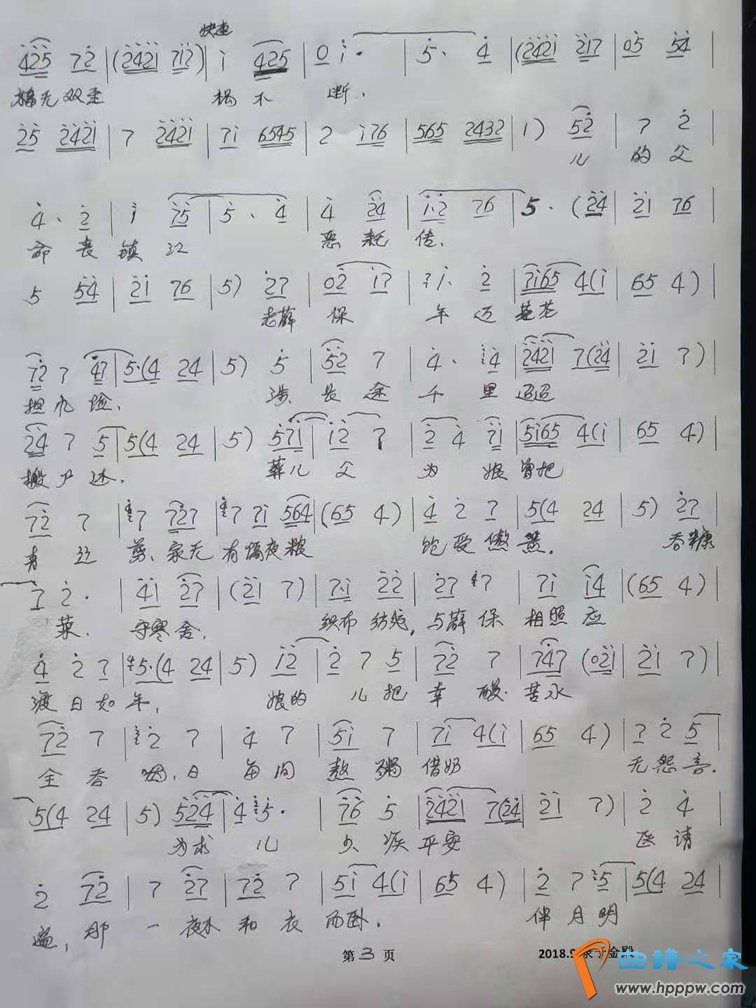 快速
4 2 5 7 2 | (2 4 2 1 7 1 2) | i 4 2 5 | 0 i · | 5 · 4 | (2 4 2 1 2 1 7 | 0 5 5 4 |
楊 不 断.
2 5 2 4 2 1 | 7 2 4 2 1 | 7 i 6 5 4 5 | 2 i 7 6 | 5 6 5 2 4 3 2 | 1) 5 2 | 7 2 |
儿 的 父
4 · 2 | i 7 5 | 5 · 4 | 4 2 4 | i · 2 7 6 | 5 · (2 4 | 2 1 7 6 |
命 丧 镇 江 恶 耗 传.
5 5 4 | 2 1 7 6 | 5) 2 7 | 0 2 i 7 | i · 2 | 7 i 6 5 4 (i | 6 5 4) |
老薛 保 年 迈 苍苍
7 2 7 4 7 | 5 · (4 2 4 | 5) 5 | 5 2 7 | 4 · 4 | 2 4 2 1 7 (2 4 | 2 1 7) |
担 风 险. 涉 长 途 千 里 迢迢
2 4 7 5 | 5 (4 2 4 | 5) 5 7 i | i 2 7 | 2 4 7 i | 5 i 6 5 4 (i | 6 5 4) |
搬 尸 还. 葬儿 父 为 娘 曾把
7 2 7 | 7 7 2 7 | 7 7 i 5 6 4 | (6 5 4) | 4 2 7 | 5 (4 2 4 | 5) 2 7 |
青 丝 剪、家无 有隔夜粮 饱 受 熬煎. 吞糠
7 2 · | 4 i 2 7 | (2 1 7) | 7 · i 2 2 | 2 7 7 | 7 i i 4 | (6 5 4) |
菜、守寒舍. 织布纺纱，与薛 保 相照 应
4 2 7 | 5 · (4 2 4 | 5) i 2 | 2 7 5 | 7 2 7 | 7 4 7 (0 2 1 | 2 1 7) |
渡 日 如 年， 娘的 儿 把 辛 酸 苦水
7 2 7 | 2 7 | 4 7 | 5 i 7 | 7 i 4 (i | 6 5 4) | 7 2 5 |
全 吞 咽，日 每间 熬 粥 借奶 无怨言.
5 (4 2 4 | 5) 5 2 4 | 4 5 · | 7 6 5 | 2 4 2 1 7 (2 4 | 2 1 7) | 2 4 |
为求 儿 少 疾 平安 医 请
2 7 2 | 7 2 7 | 7 2 7 | 5 i 4 (i | 6 5 4) | 2 7 5 | 5 (4 2 4 |
遍，那 一 夜不 和 衣 而卧. 伴 月 明
第 3 页
2018.9
金殿
曲谱之家
www.hpppw.com